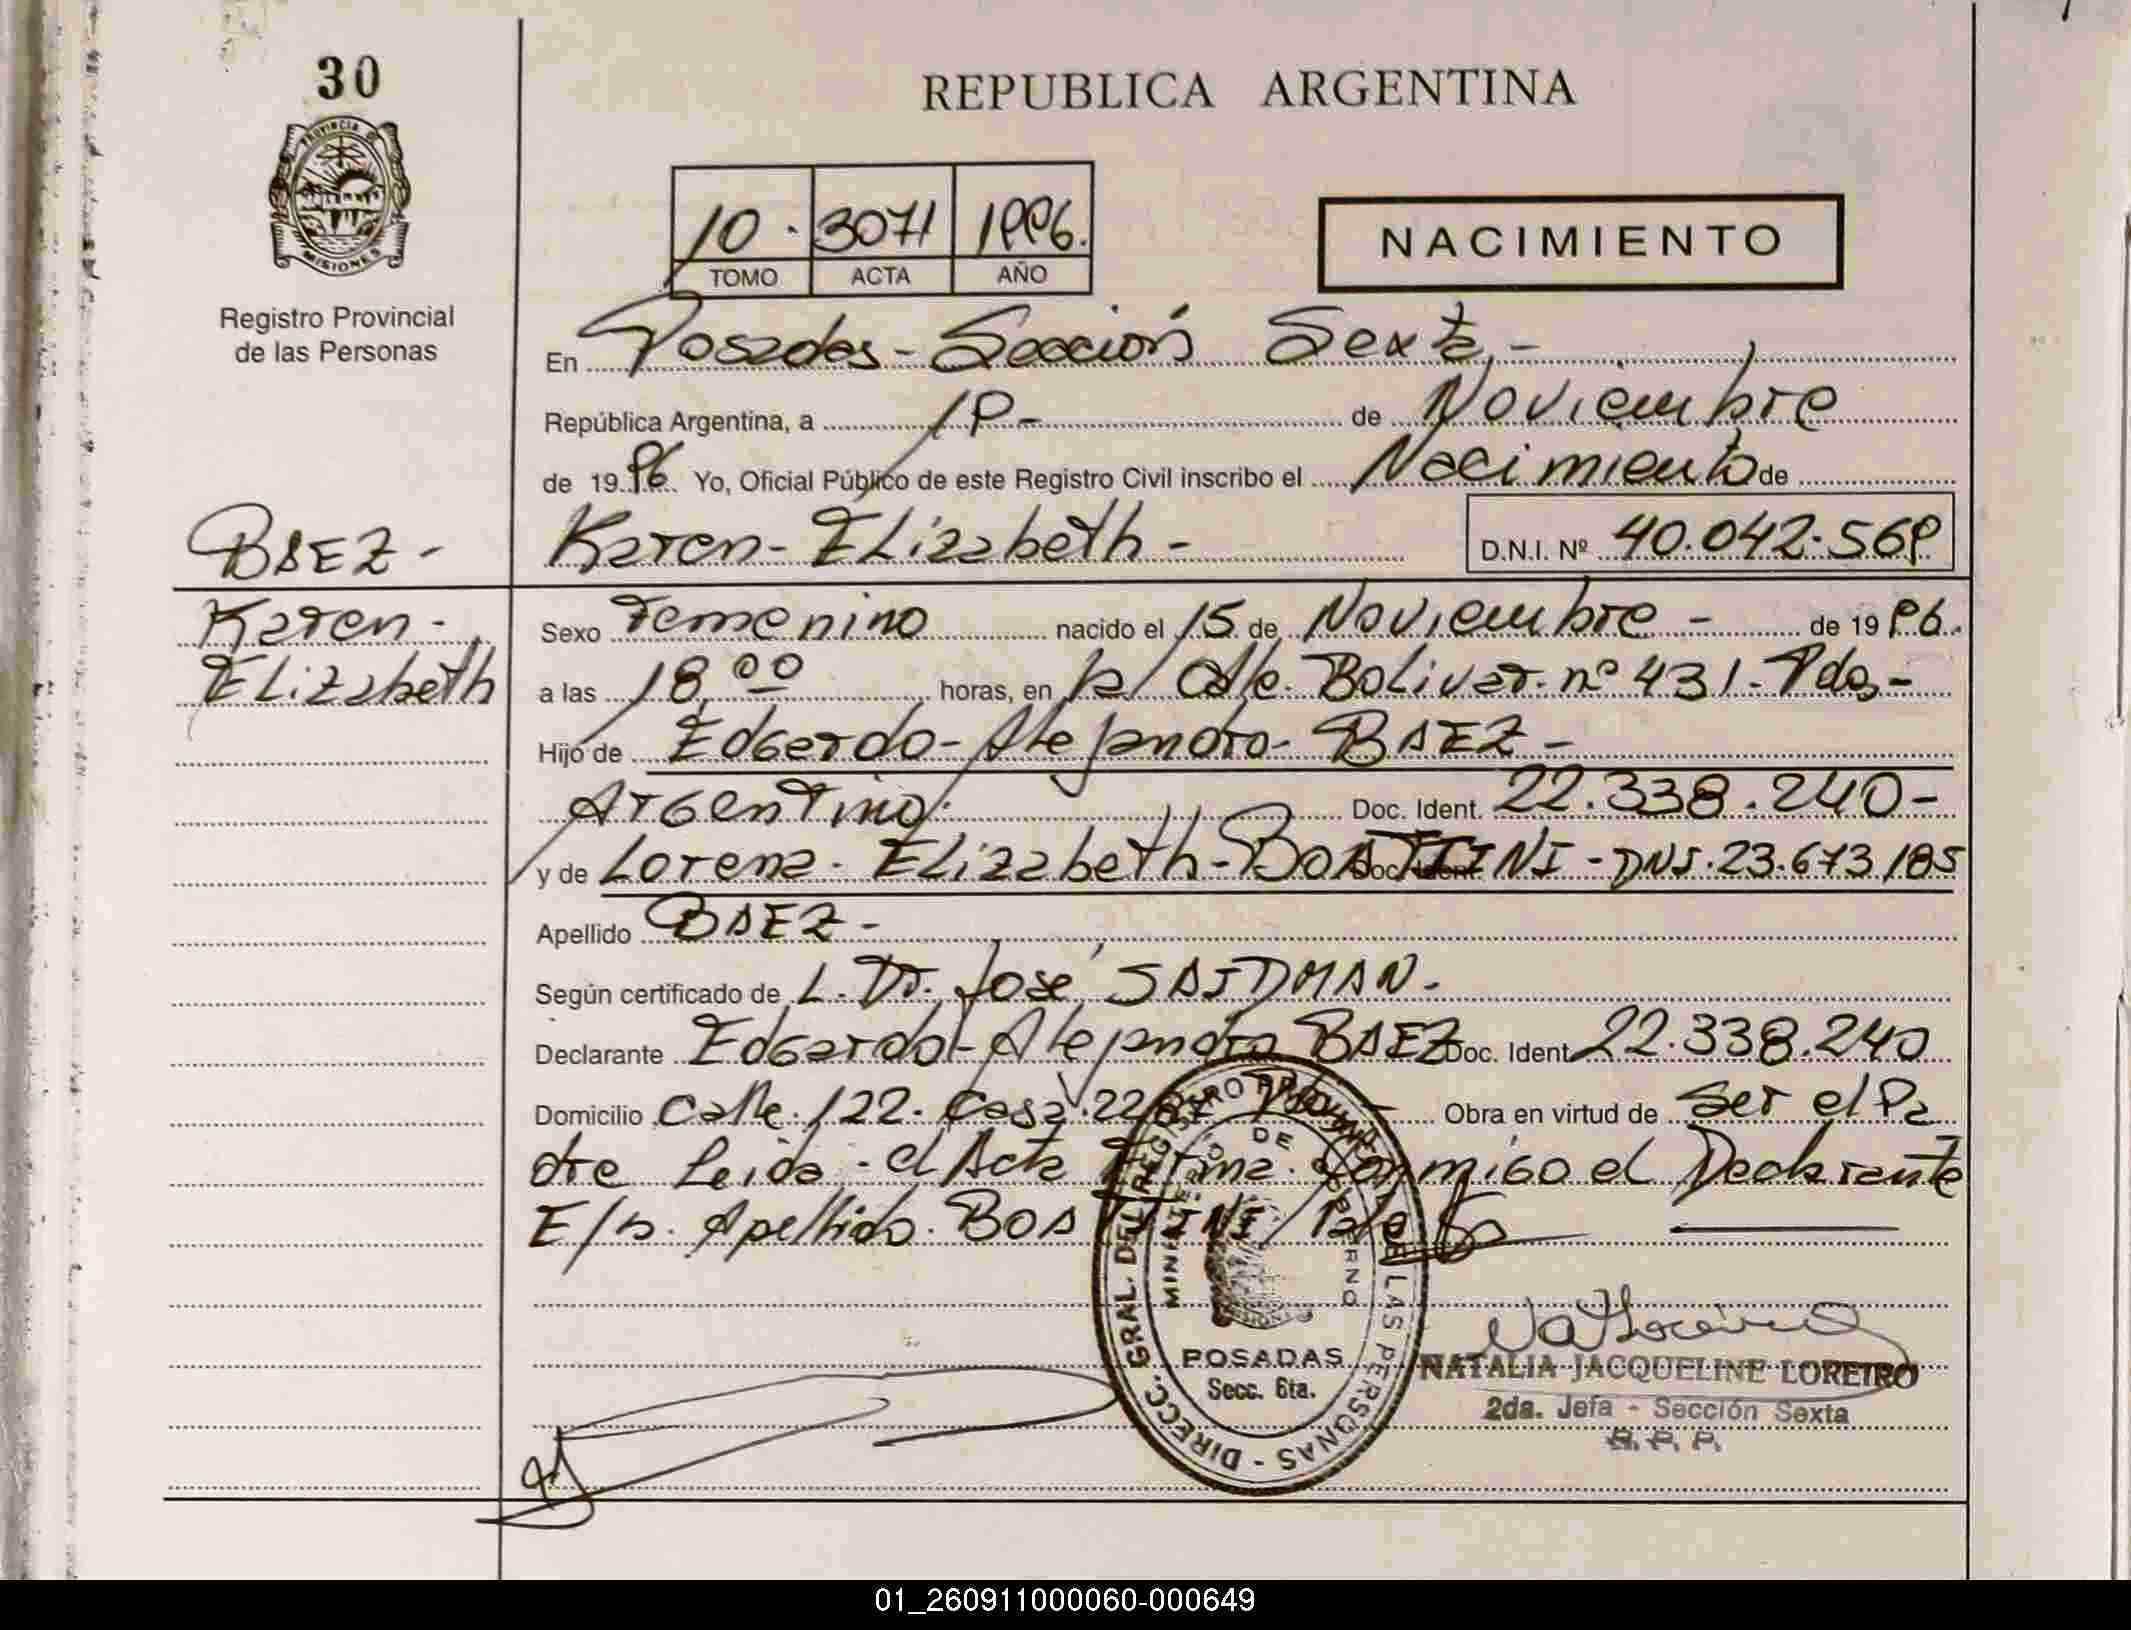 30
PROVINCIA D
MISIONES
Registro Provincial
de las Personas
REPUBLICA ARGENTINA
10. 3071 1996.
TOMO ACTA AÑO
NACIMIENTO
En Posadas - Sección Sexta, -
República Argentina, a 19 - de Noviembre
de 19 96 Yo, Oficial Público de este Registro Civil inscribo el Nacimiento de
BAEZ - Karen - Elizabeth - D.N.I. Nº 40.042.569
Karen -
Elizabeth
Sexo Femenino nacido el 15 de Noviembre - de 19 96.
a las 18,00 horas, en Calle Bolivar nº 431 - Pdas -
Hijo de Edgardo - Alejandro - BAEZ -
Argentino. Doc. Ident. 22.338.240 -
y de Lorena - Elizabeth - BOATTINI - DNI. 23.673.185
Apellido BAEZ -
Según certificado de L. Dr. José SAIDMAN. -
Declarante Edgardo - Alejandro BAEZ Doc. Ident. 22.338.240
Domicilio Calle 122. Casa 22 Obra en virtud de Ser el Pa
dre Leida - el Acta Firma Conmigo el Declarante
E/s. Apellido. BOATTINI / Vale
DIRECC. GRAL. DEL REGISTRO PROVINCIAL DE LAS PERSONAS -
MINISTERIO DE GOBIERNO
POSADAS
Secc. 6ta.
NATALIA JACQUELINE LOREIRO
2da. Jefa - Sección Sexta
R. P. P.
01_260911000060-000649